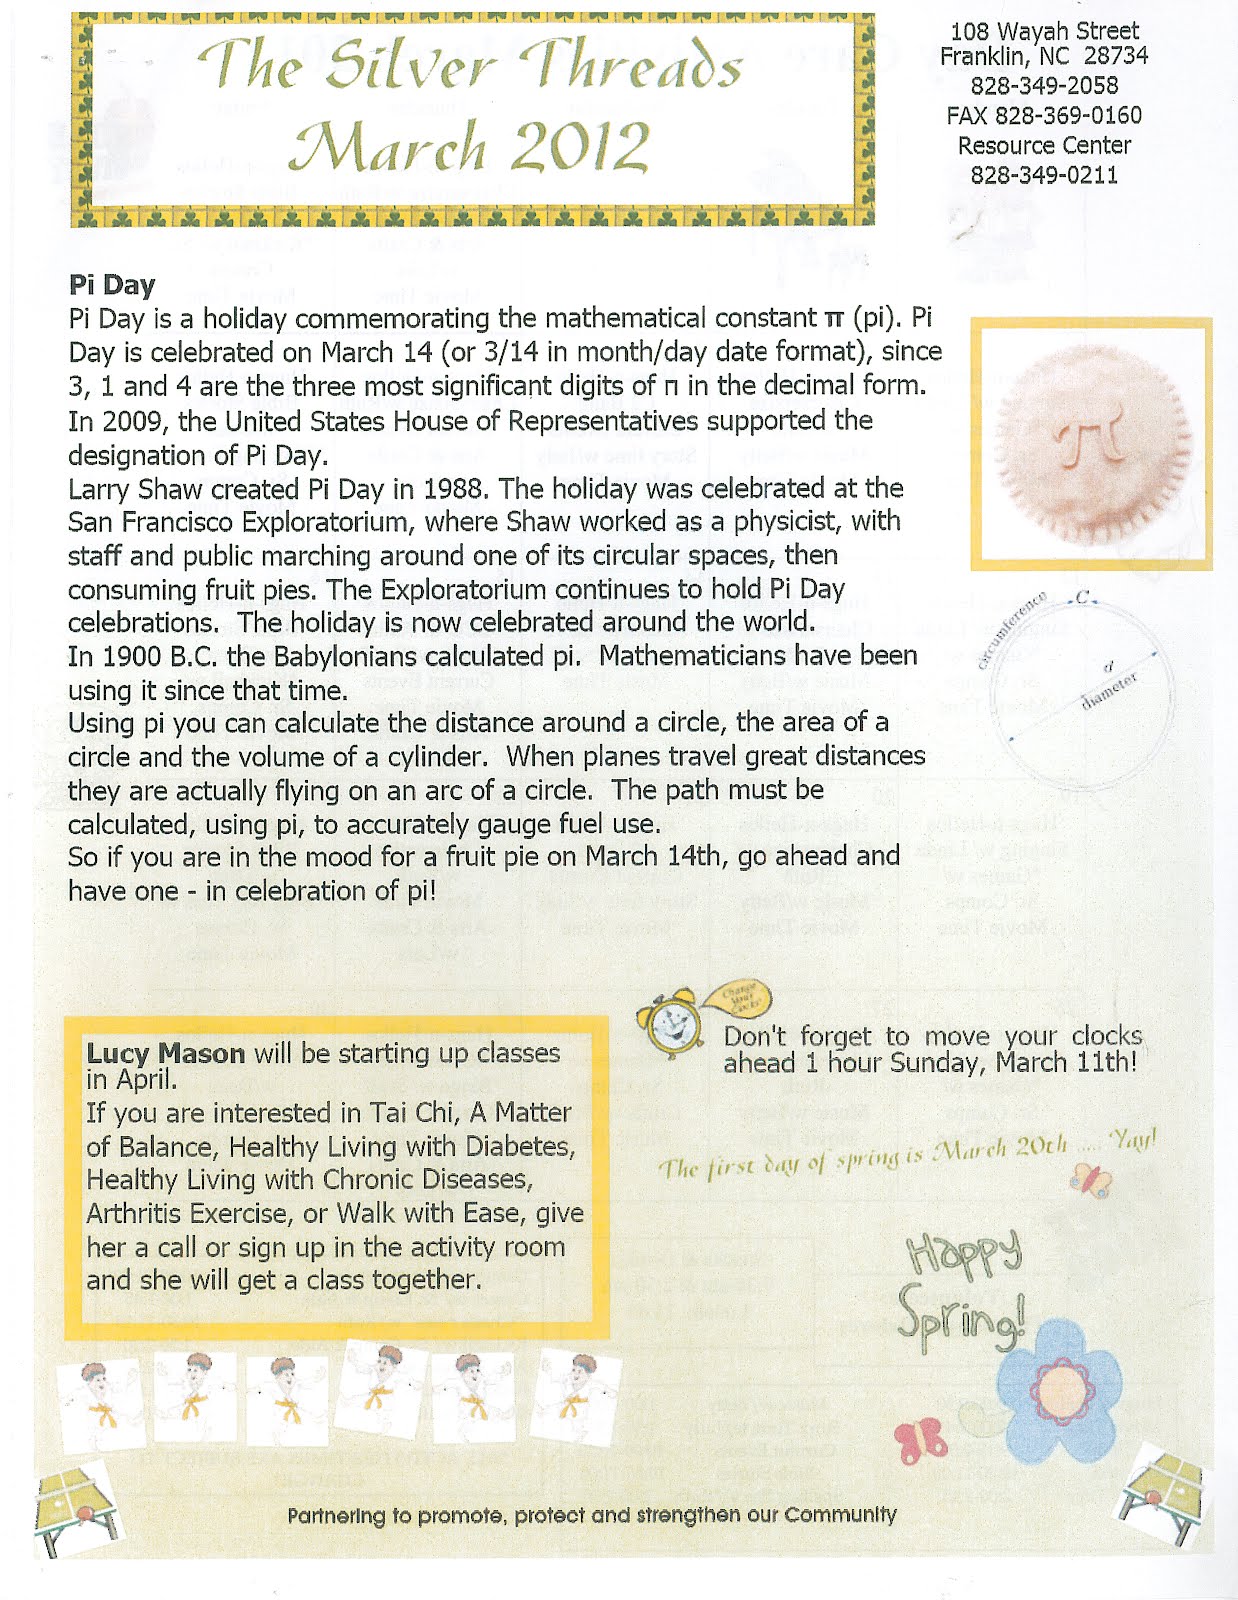 The Silver Threads
March 2012
108 Wayah Street
Franklin, NC 28734
828-349-2058
FAX 828-369-0160
Resource Center
828-349-0211
Pi Day
Pi Day is a holiday commemorating the mathematical constant π (pi). Pi
Day is celebrated on March 14 (or 3/14 in month/day date format), since
3, 1 and 4 are the three most significant digits of π in the decimal form.
In 2009, the United States House of Representatives supported the
designation of Pi Day.
Larry Shaw created Pi Day in 1988. The holiday was celebrated at the
San Francisco Exploratorium, where Shaw worked as a physicist, with
staff and public marching around one of its circular spaces, then
consuming fruit pies. The Exploratorium continues to hold Pi Day
celebrations. The holiday is now celebrated around the world.
In 1900 B.C. the Babylonians calculated pi. Mathematicians have been
using it since that time.
Using pi you can calculate the distance around a circle, the area of a
circle and the volume of a cylinder. When planes travel great distances
they are actually flying on an arc of a circle. The path must be
calculated, using pi, to accurately gauge fuel use.
So if you are in the mood for a fruit pie on March 14th, go ahead and
have one - in celebration of pi!
π
circumference C
d
diameter
Change
Your
Clocks
Don't forget to move your clocks
ahead 1 hour Sunday, March 11th!
Lucy Mason will be starting up classes
in April.
If you are interested in Tai Chi, A Matter
of Balance, Healthy Living with Diabetes,
Healthy Living with Chronic Diseases,
Arthritis Exercise, or Walk with Ease, give
her a call or sign up in the activity room
and she will get a class together.
The first day of spring is March 20th ..... Yay!
Happy
Spring!
Partnering to promote, protect and strengthen our Community